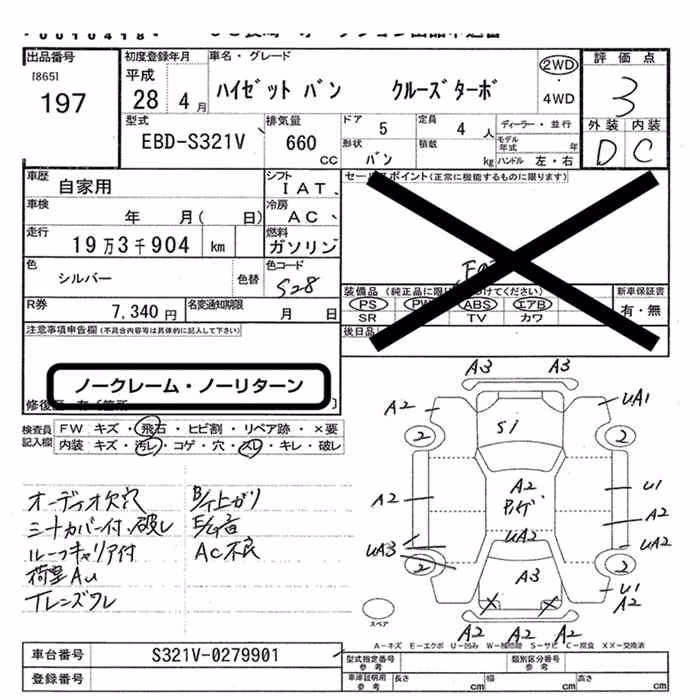 出品番号
[865]
197
初度登録年月
平成
28 4 月
車名・グレード
ハイゼット バン クルーズターボ
2WD
4WD
評価点
3
外装 内装
D C
型式
EBD-S321V
排気量
660
cc
ドア
5
定員
4 人
形状
バン
積載
kg
ディーラー・並行
モデル年式
年
ハンドル 左・右
車歴
自家用
シフト
IAT
セールスポイント(正常に機能するものに限ります)
車検
年 月( 日)
冷房
AC
走行
19万3千904 km
燃料
ガソリン
色
シルバー
色替
色コード
S28
装備品 (純正品に限り
つけてください)
PS PW ABS エアB
SR TV カワ
新車保証書
有・無
後日品
R券
7,340 円
名変通知期限
月 日
注意事項申告欄(不具合内容等は具体的に記入して下さい)
ノークレーム・ノーリターン
検査員記入欄
FW キズ・飛石・ヒビ割・リペア跡・×要
内装 キズ・汚レ・コゲ・穴・スレ・キレ・破レ
オーディオ欠穴
ミラカバー付、破レ
ルーフキャリア付
荷室AU
Tレンズワレ
B/下上がり
E/G音
AC不良
A3 A3
A2 UA1
2 2
S1
A2 A2 U1
A2
UA3 UA2 UA2
2 2
A3 U1
A2
A2 A2 A2
スペア
A-キズ E-エクボ U-凹み W-補修跡 S-サビ C-腐食 XX-交換済
車台番号
S321V-0279901
登録番号
型式指定番号
参考
類別区分番号
参考
車庫証明用
参考
長さ cm
幅 cm
高さ cm